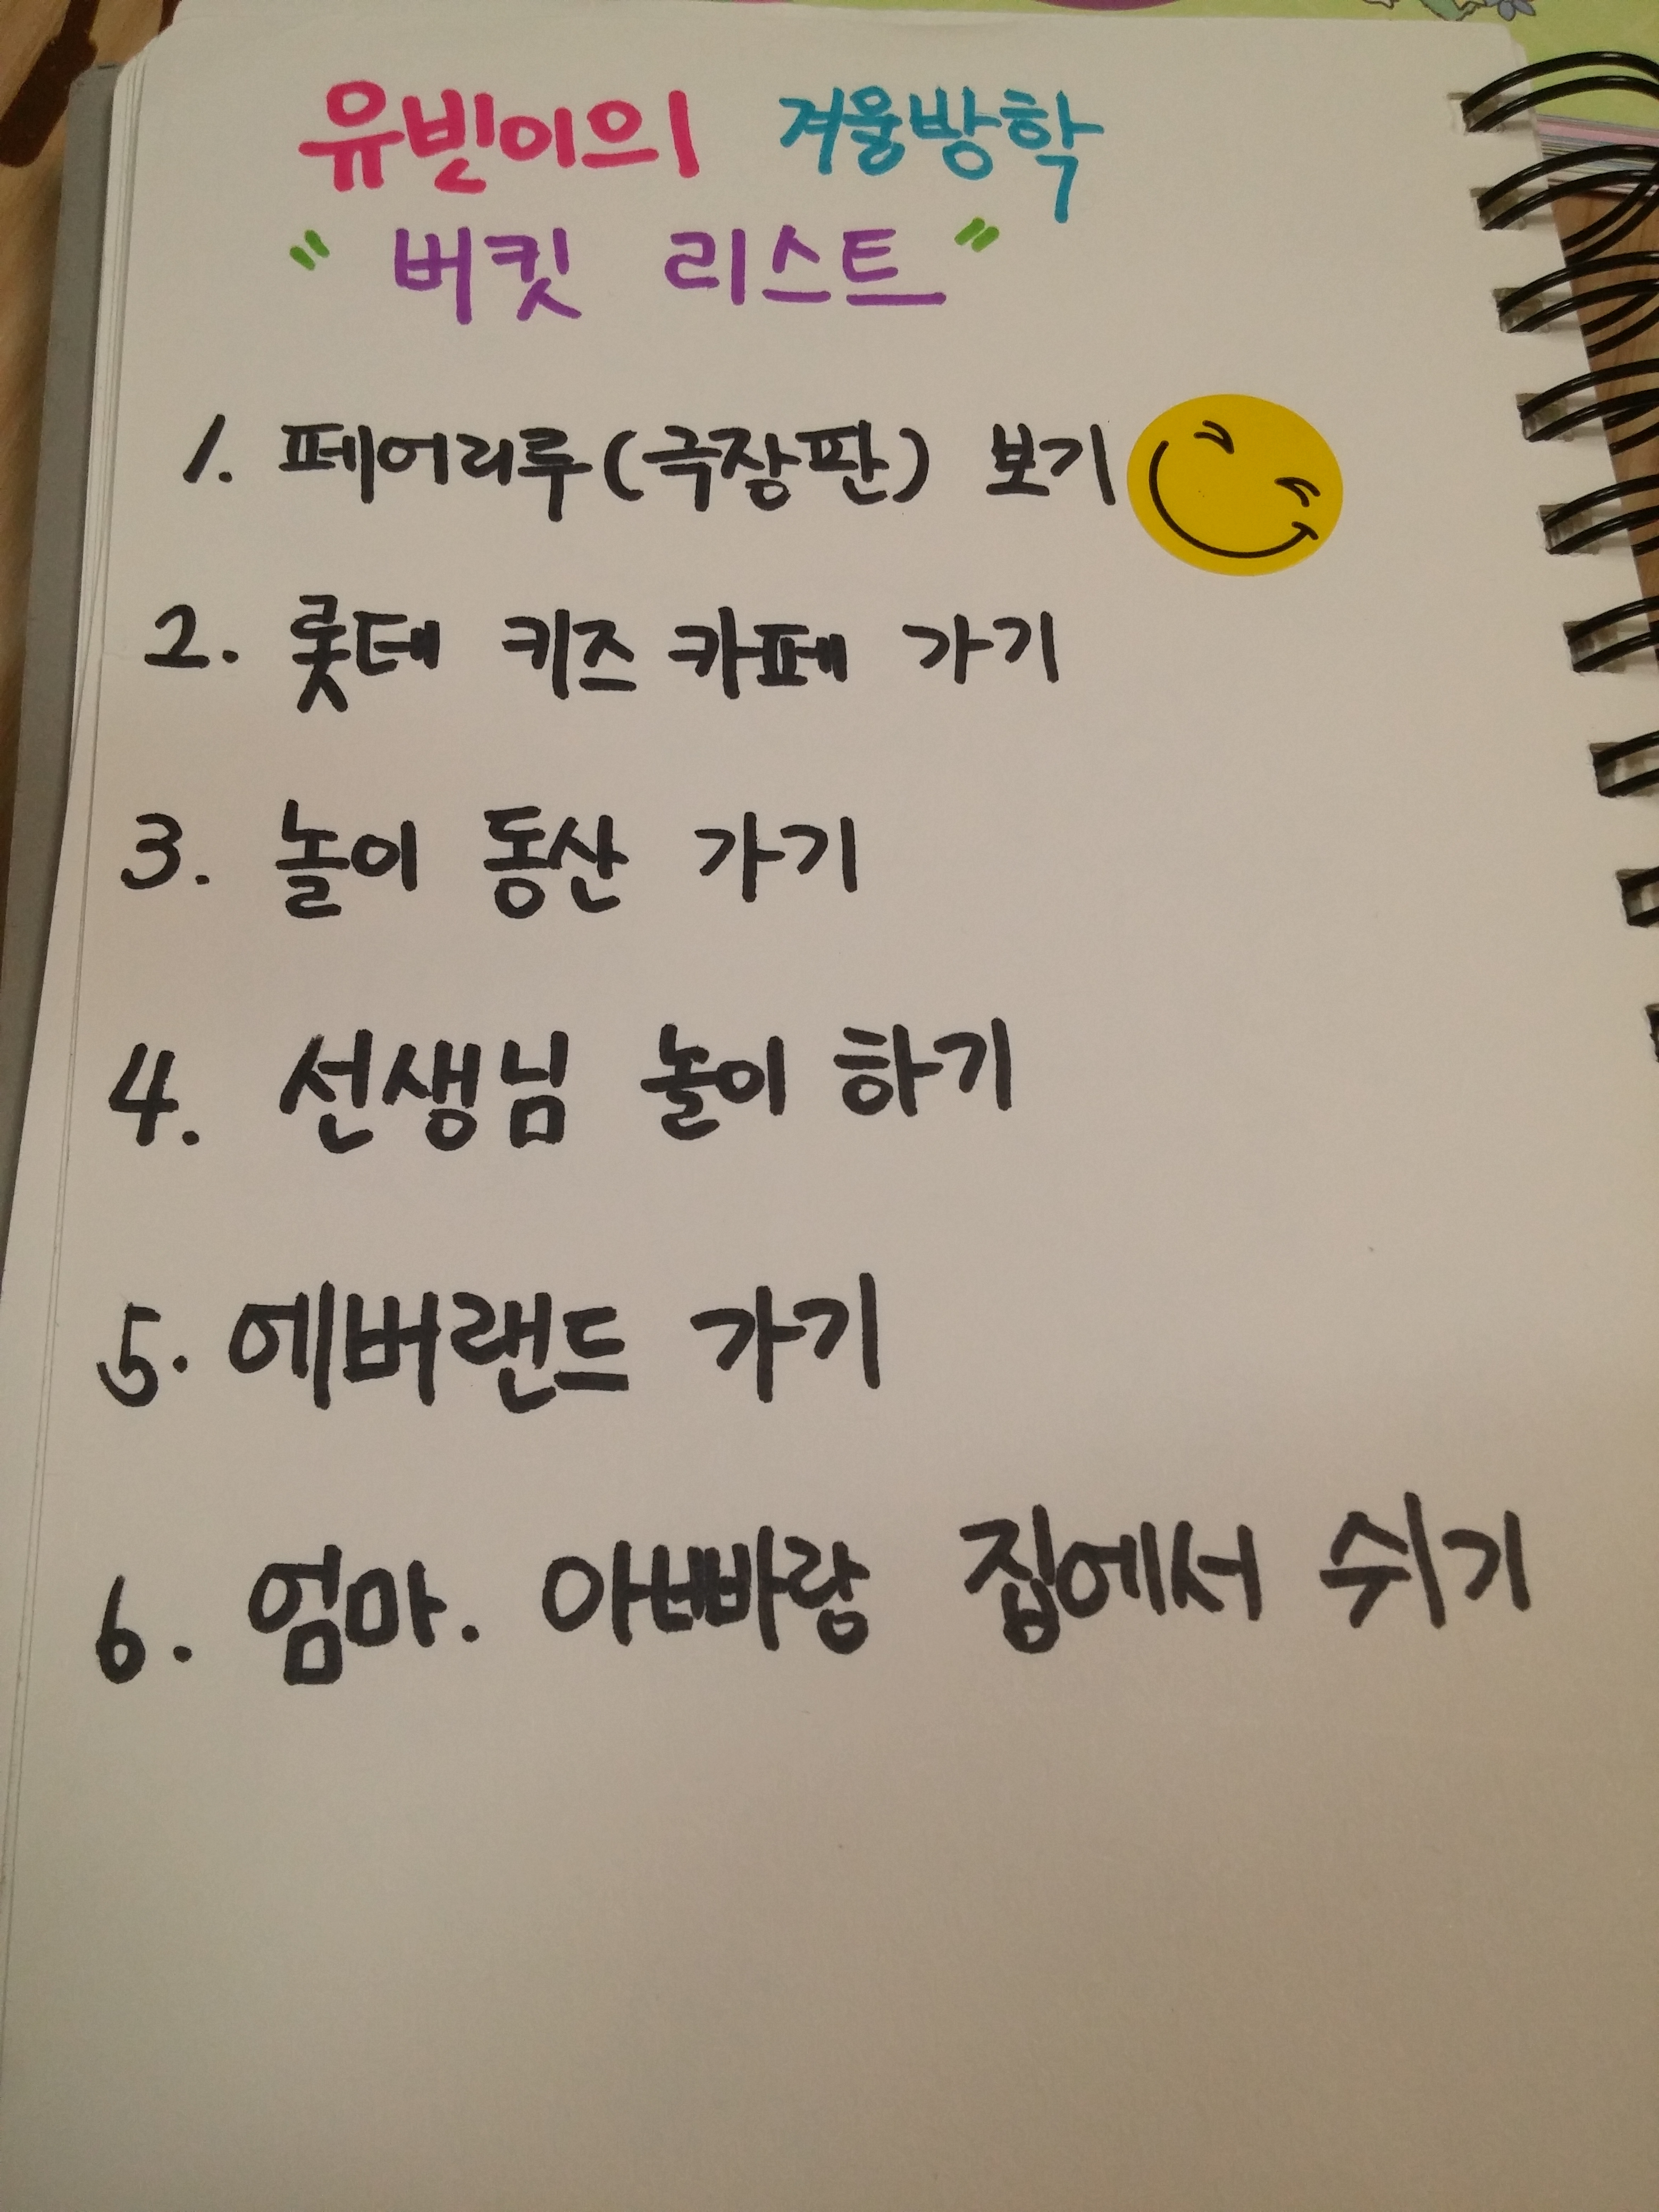 유빈이의 겨울방학
" 버킷 리스트 "
1. 페어리루(극장판) 보기
2. 롯데 키즈 카페 가기
3. 놀이 동산 가기
4. 선생님 놀이 하기
5. 에버랜드 가기
6. 엄마. 아빠랑 집에서 쉬기